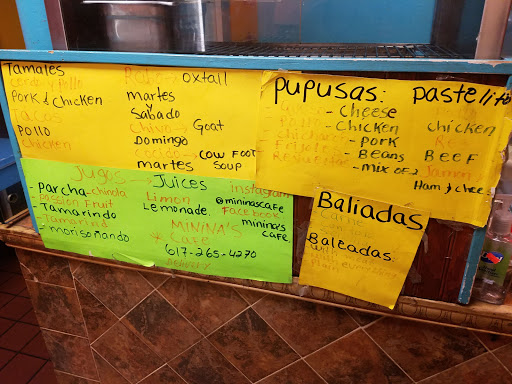 Tamales
Cerdo y Pollo
Pork & Chicken
Tacos
Pollo
Chicken
Rabo → Oxtail
martes
y
Sabado
Chivo → Goat
Domingo
cow Foot
martes Soup
PUPUSAS:
- Cheese
- Chicken
- Pork
- Beans
- mix of 2
Pastelito
Pollo
chicken
Res
BEEF
Jamon
Ham & chee
Jugos → Juices
- Parcha - chinola
Passion Fruit
- Tamarindo
Tamarind
- morisoñando
Limon
Lemonade
MININA'S
Cafe
617-265-4270
Instagram
@mininascafe
Facebook
mininas
cafe
Baliadas
Carne
Baleadas: